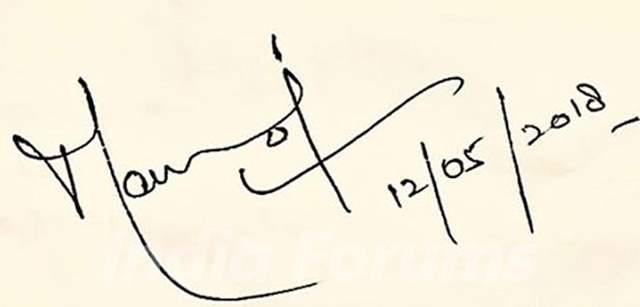 Manoj 12/05/2018
India Forums